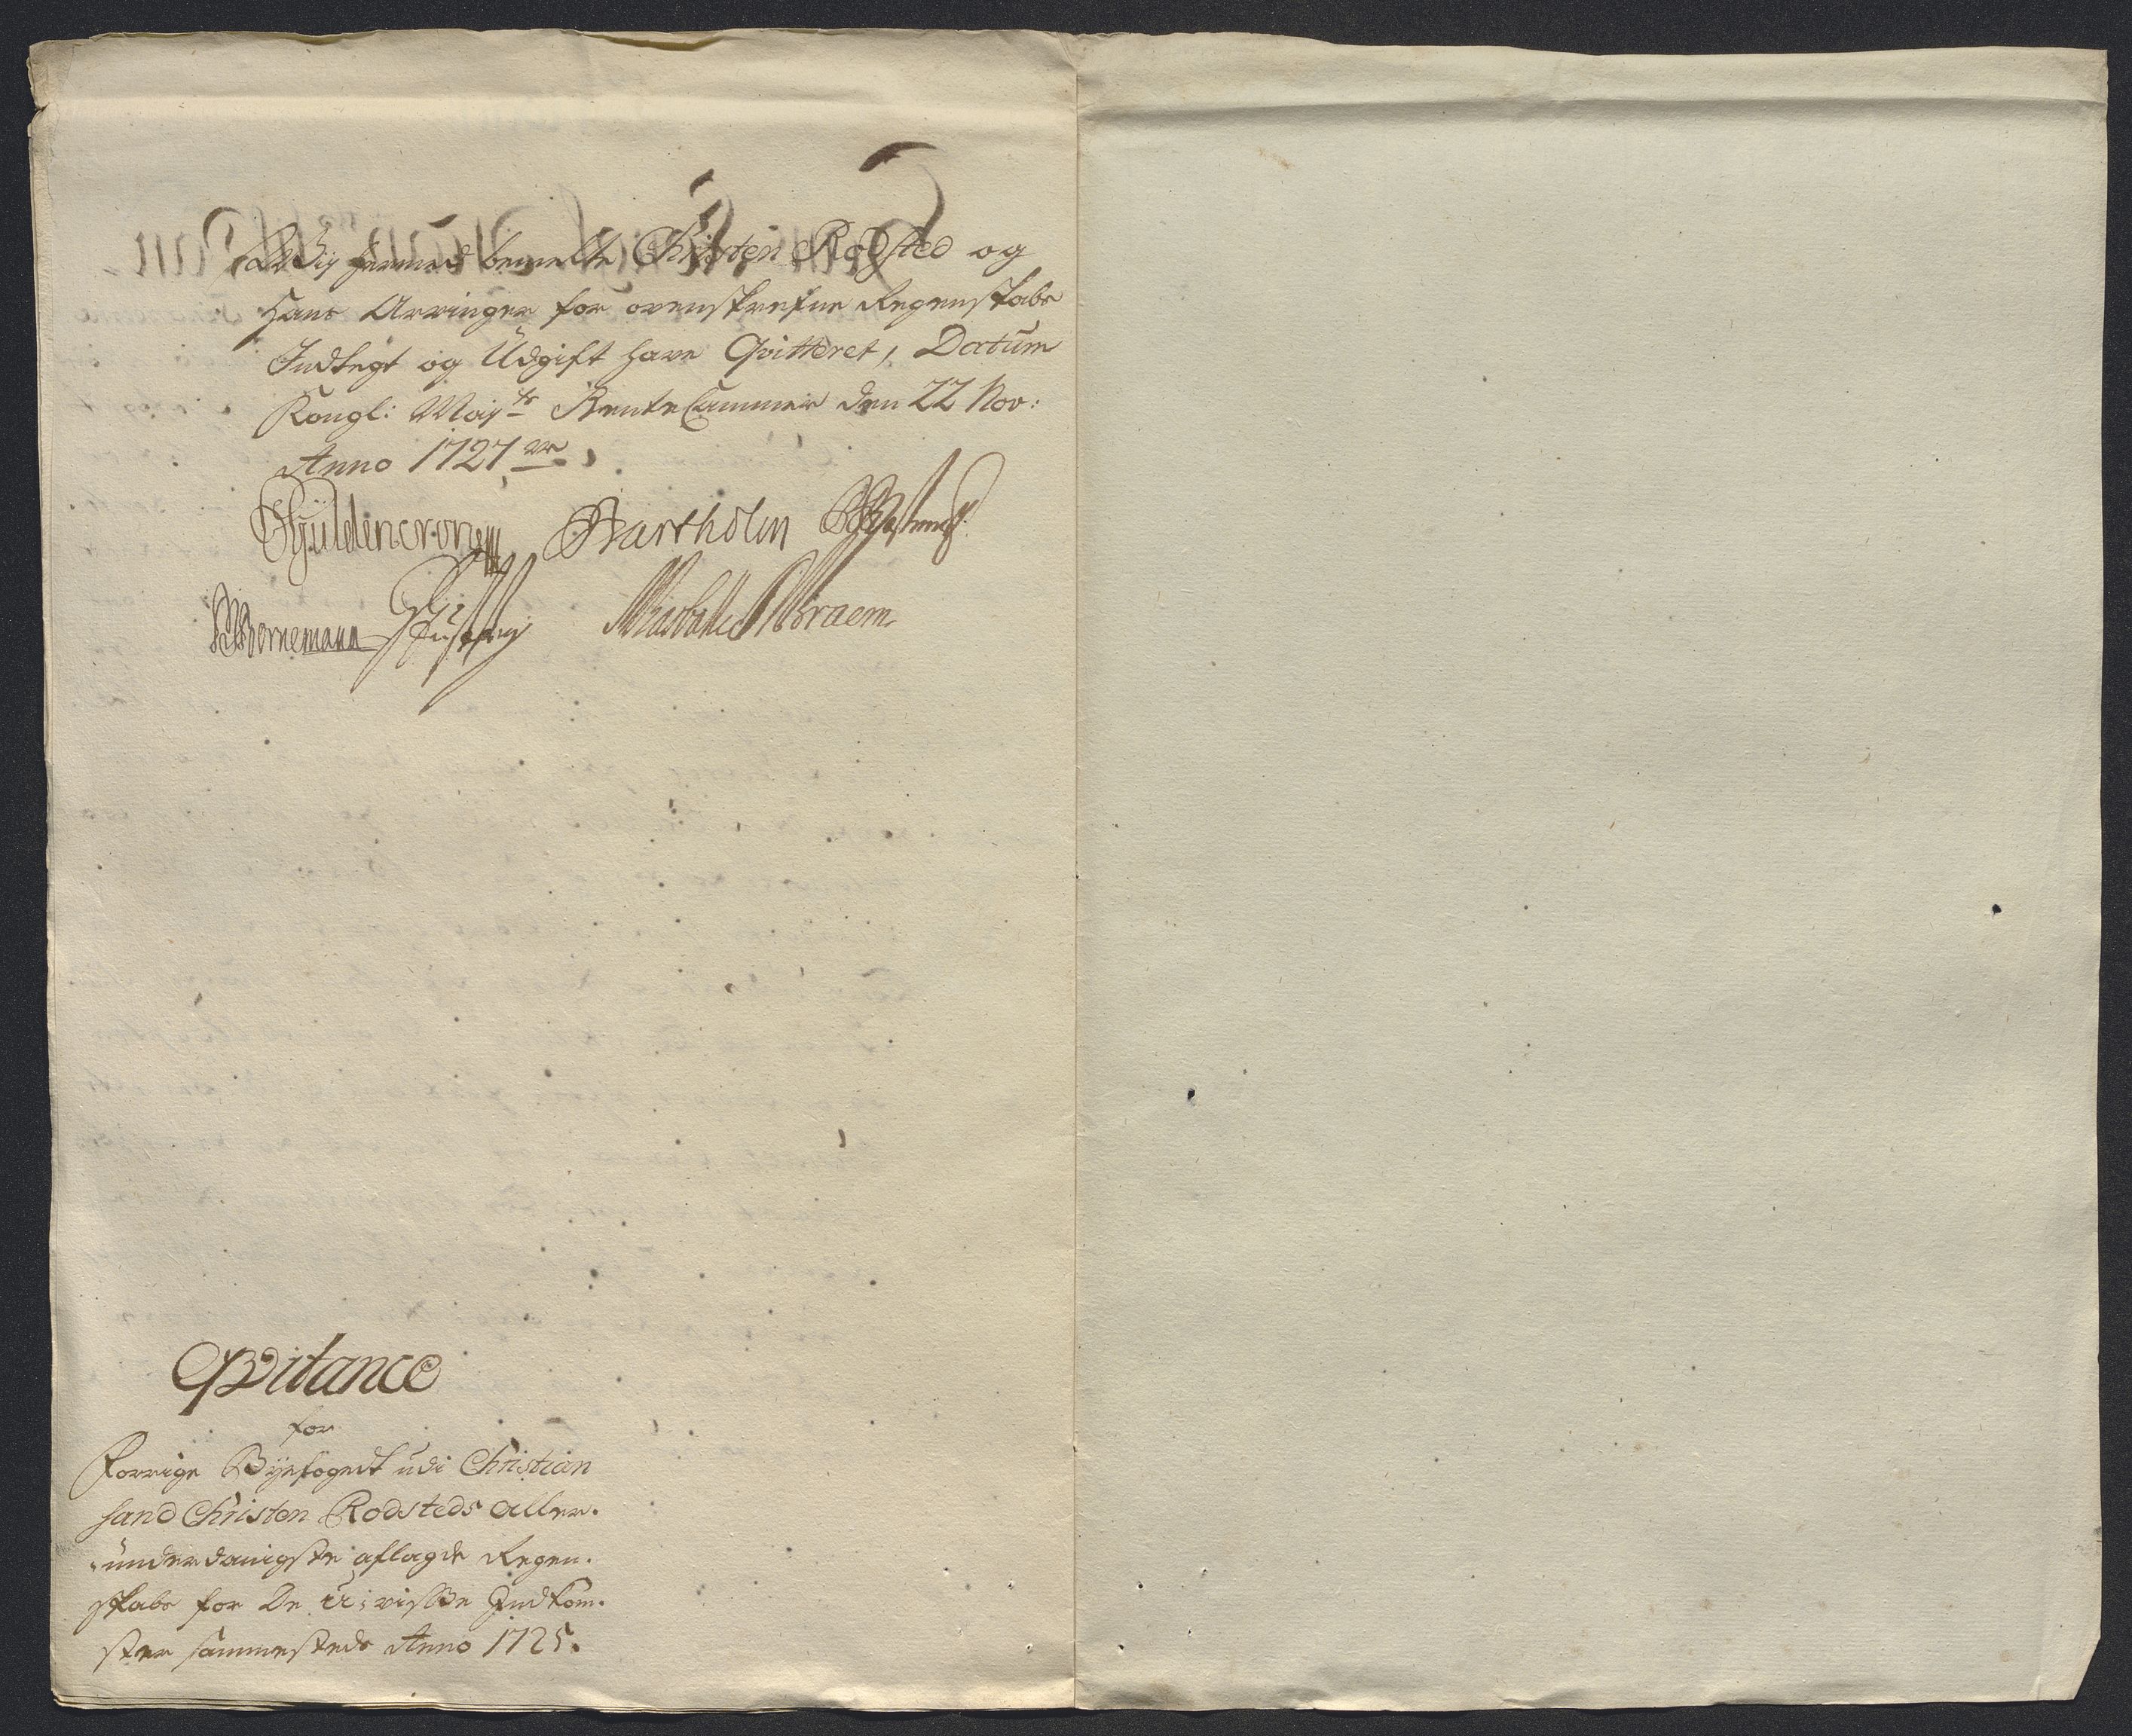 Wij hermed bemelte Christen Rodsted og
Hans Arvinger for ovenskrefne Regenskabs
Indtegt og Udgift have Qvitteret, Datum
Kongl: May:ts RenteCammer den 22 Nov:
Anno 1727
Güldencrone Bartholin
Bornemann Braem
Qvitance
for
Forrige Byefogedt udi Christian
sand Christen Rodsteds Aller-
underdanigste aflagde Regen-
skabs for De u-visse Indkom-
ster sammesteds Anno 1725.